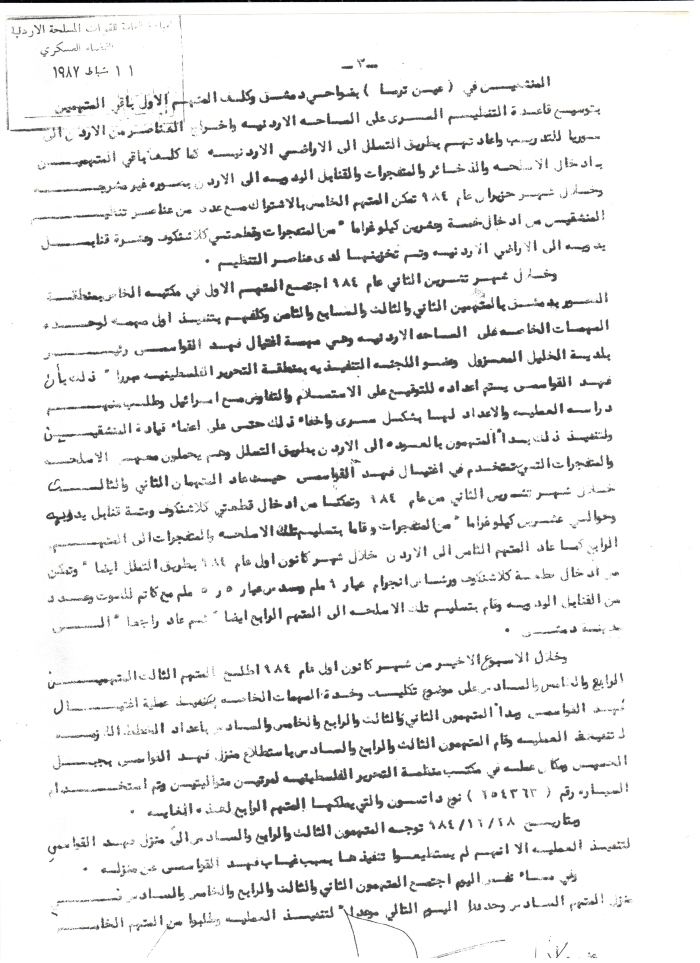 القيادة العامة للقوات المسلحة الاردنية
القضاء العسكري
١١ شباط ١٩٨٧
— ٣ —
المنشقين في ( عين ترما ) بضواحي دمشق وكلف المتهم الاول باقي المتهمين
بتوسيع قاعدة التنظيم السرى على الساحه الاردنيه واخراج العناصر من الاردن الى
سوريا للتدريب واعادتهم بطريق التسلل الى الاراضي الاردنيه كما كلف باقي المتهمين
بادخال الاسلحه والذخائر والمتفجرات والقنابل اليدويه الى الاردن بصوره غير مشروعه
وخلال شهر حزيران عام ٩٨٤ تمكن المتهم الخامس بالاشتراك مع عدد من عناصر تنظيم
المنشقين من ادخال خمسة وعشرين كيلو غراما" من المتفجرات وقطعتي كلاشنكوف وعشرة قنابل
يدويه الى الاراضي الاردنيه وتم تخزينها لدى عناصر التنظيم .
وخلال شهر تشرين الثاني عام ٩٨٤ اجتمع المتهم الاول في مكتبه الخاص بمنطقة
بدمشق بالمتهمين الثاني والثالث والسابع والثامن وكلفهم بتنفيذ اول مهمه لوحده
المهمات الخاصه على الساحه الاردنيه وهي مهمة اغتيال فهد القواسمى رئيس
بلدية الخليل المعزول وعضو اللجنه التنفيذيه بمنطقة التحرير الفلسطينيه مبررا" ذلك بأن
فهد القواسمى يتم اعداده للتوقيع على الاستسلام والتفاوض مع اسرائيل وطلب منهم
دراسه العمليه والاعداد لها بشكل سرى واخفاء ذلك حتى على اعضاء قيادة المنشقين
ولتنفيذ ذلك بدأ المتهمون بالعوده الى الاردن بطريق التسلل وهم يحملون معهم الاسلحه
والمتفجرات التي تستخدم في اغتيال فهد القواسمى حيث عاد المتهمان الثاني والثالث
خلال شهر تشرين الثاني من عام ٩٨٤ وتمكنا من ادخال قطعتي كلاشنكوف وستة قنابل يدويه
وحوالي عشرين كيلو غراما" من المتفجرات وقاما بتسليم تلك الاسلحه والمتفجرات الى المتهم
الرابع كما عاد المتهم الثامن الى الاردن خلال شهر كانون اول عام ٩٨٤ بطريق التسلل ايضا" وتمكن
من ادخال قطعة كلاشنكوف ورشاش انجرام عيار ٩ ملم ومسدس عيار ٥ر٥ ملم مع كاتم للصوت وعدد
من القنابل اليدويه وقام بتسليم تلك الاسلحه الى المتهم الرابع ايضا" ثم عاد راجعا" الى
مدينة دمشق .
وخلال الاسبوع الاخير من شهر كانون اول عام ٩٨٤ اطلع المتهم الثالث المتهمين
الرابع والخامس والسادس على موضوع تكليف وحدة المهمات الخاصه بتنفيذ عملية اغتيال
فهد القواسمى وبدأ المتهمون الثاني والثالث والرابع والخامس والسادس باعداد الخطط اللازمه
لتنفيذ العمليه وقام المتهمون الثالث والرابع والسادس باستطلاع منزل فهد القواسمى بجبل
الحسين ومكان عمله في مكتب منظمة التحرير الفلسطينيه لمرتين متواليتين وتم استخدام
السياره رقم ( ١٥٤٣٦٣ ) نوع داتسون والتي يملكها المتهم الرابع لهذه الغايه .
وبتاريخ ٩٨٤/١٢/٢٨ توجه المتهمون الثالث والرابع والسادس الى منزل فهد القواسمي
لتنفيذ العمليه الا انهم لم يستطيعوا تنفيذها بسبب غياب فهد القواسمى عن منزله .
وفي مساء نفس اليوم اجتمع المتهمون الثاني والثالث والرابع والخامس والسادس في
منزل المتهم السادس وحددوا اليوم التالي موعدا" لتنفيذ العمليه وطلبوا من المتهم الخامس